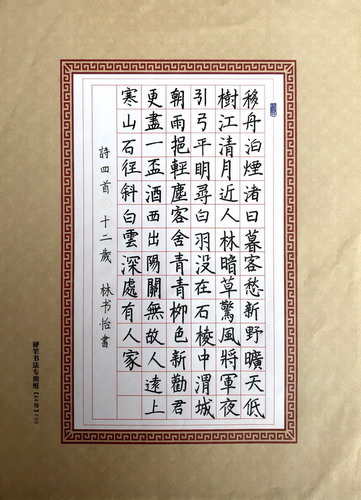 移舟泊煙渚日暮客愁新野曠天低
樹江清月近人林暗草驚風將軍夜
引弓平明尋白羽没在石棱中渭城
朝雨挹輕塵客舍青青柳色新勸君
更盡一盃酒西出陽關無故人遠上
寒山石径斜白雲深處有人家
詩四首 十二歲 林书怡書
硬笔书法专用纸